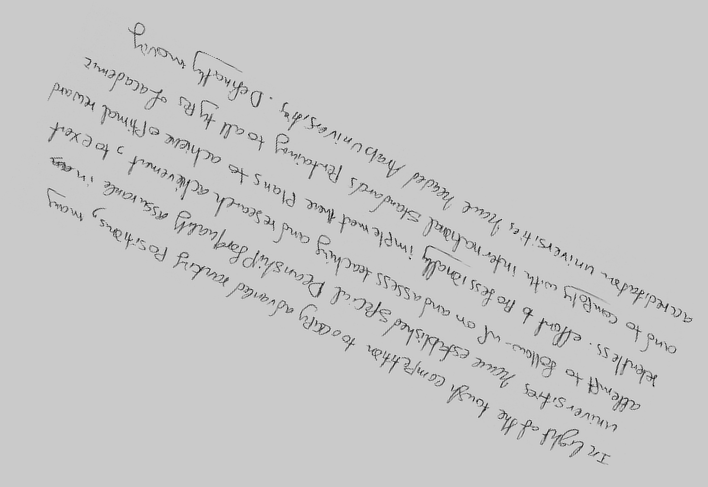 In light of the tough competition to occupy advanced ranking Positions, many
universities have established special Deanship for quality assurance in an
attempt to follow-up on and assess teaching and research achievement, to exert
relentless. effort to Professionally implement there Plans to achieve optimal reward
and to comply with international standards Pertaining to all typs of academic
accreditation universities have needed Arab Universities. Definatly moving